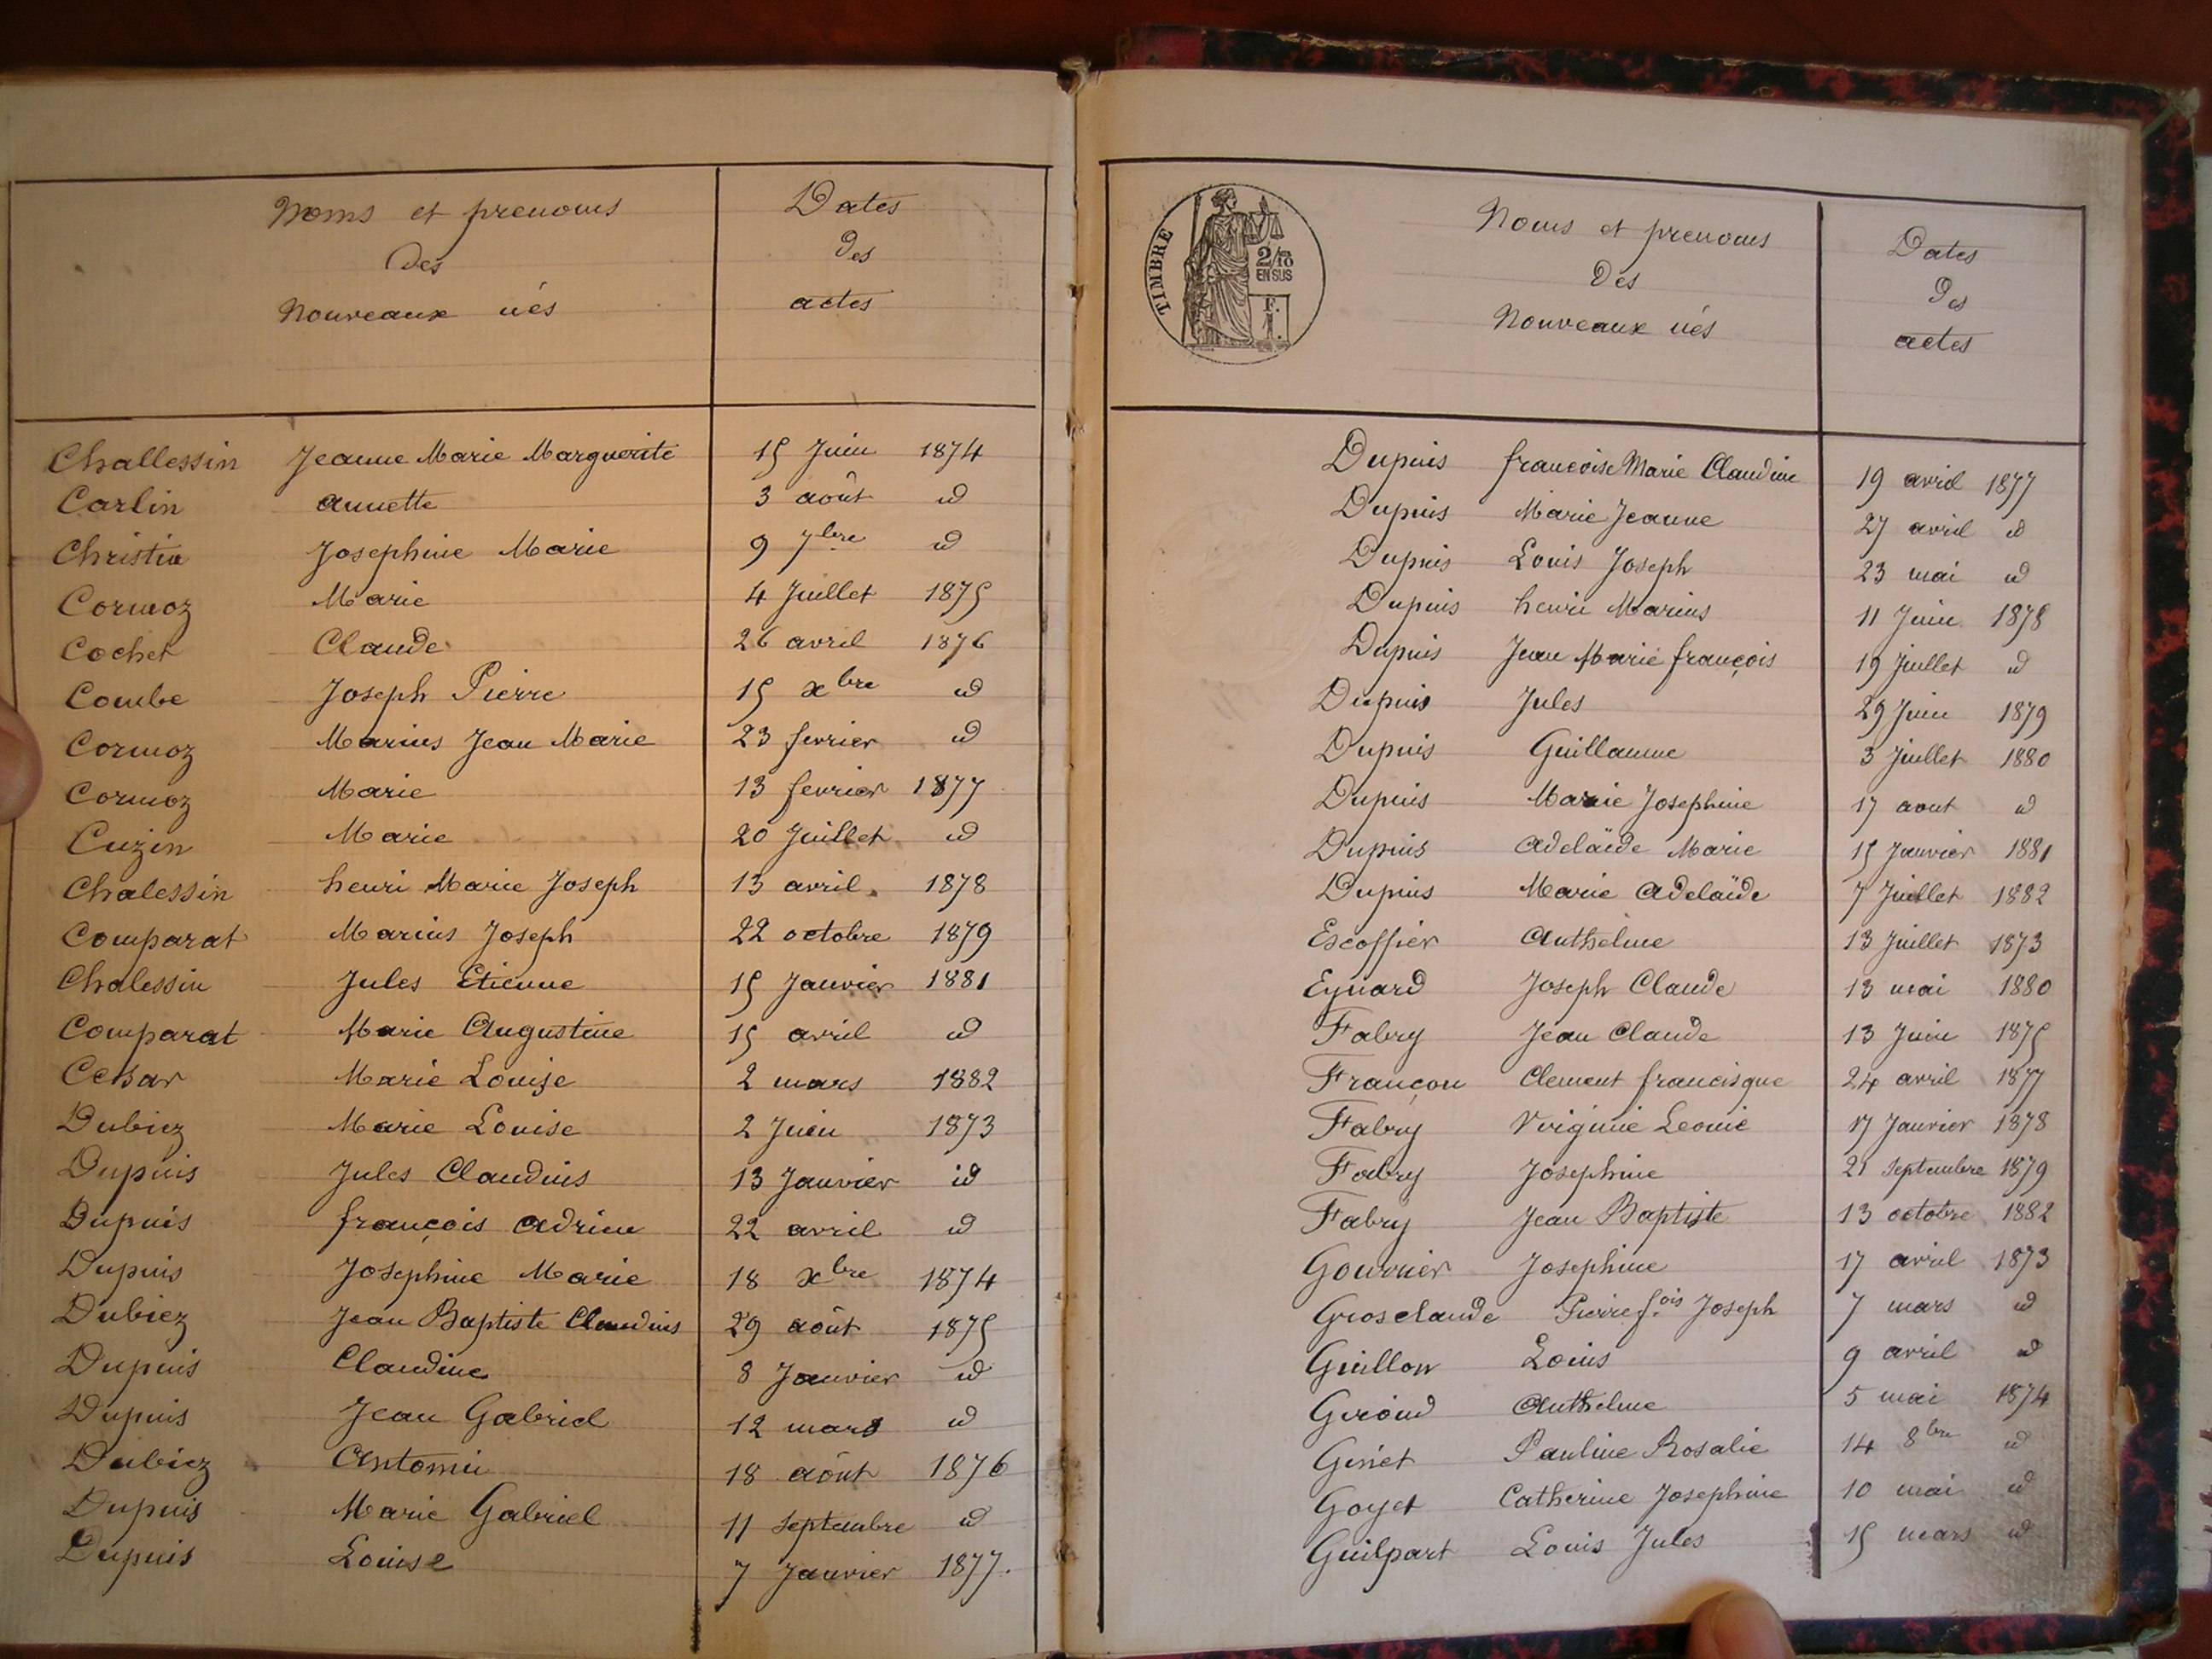 Noms et prenoms
des
Nouveaux nés
Dates
des
actes
Challessin Jeanne Marie Marguerite 15 Juin 1874
Carlin annette 3 août id
Christin Josephine Marie 9 7bre id
Cormoz Marie 4 Juillet 1875
Cochet Claude 26 avril 1876
Combe Joseph Pierre 15 xbre id
Cormoz Marius Jean Marie 23 fevrier id
Cormoz Marie 13 fevrier 1877
Cuzin Marie 20 Juillet id
Chalessin henri Marie Joseph 13 avril 1878
Comparat Marius Joseph 22 octobre 1879
Chalessin Jules Etienne 15 Janvier 1881
Comparat Marie Augustine 15 avril id
Cesar Marie Louise 2 mars 1882
Dubiez Marie Louise 2 Juin 1873
Dupuis Jules Claudius 13 Janvier id
Dupuis françois adrien 22 avril id
Dupuis Josephine Marie 18 xbre 1874
Dubiez Jean Baptiste Claudius 29 août 1875
Dupuis Claudine 8 Janvier id
Dupuis Jean Gabriel 12 mars id
Dubiez Antonin 18 août 1876
Dupuis Marie Gabriel 11 septembre id
Dupuis Louise 7 Janvier 1877.
TIMBRE
2/10
EN SUS
F.
1.
Noms et prenoms
des
Nouveaux nés
Dates
des
actes
Dupuis francoise Marie Claudine 19 avril 1877
Dupuis Marie Jeanne 27 avril id
Dupuis Louis Joseph 23 mai id
Dupuis henri Marius 11 Juin 1878
Dupuis Jean Marie françois 19 Juillet id
Dupuis Jules 29 Juin 1879
Dupuis Guillaume 3 Juillet 1880
Dupuis Marie Josephine 17 aout id
Dupuis adelaïde Marie 15 Janvier 1881
Dupuis Marie adelaïde 7 Juillet 1882
Escoffier Anthelme 13 Juillet 1873
Eynard Joseph Claude 13 mai 1880
Fabry Jean Claude 13 Juin 1875
Françon Clement francisque 24 avril 1877
Fabry Virginie Leonie 17 Janvier 1878
Fabry Josephine 21 septembre 1879
Fabry Jean Baptiste 13 octobre 1882
Gouvrier Josephine 17 avril 1873
Grosclaude Pierre f.ois Joseph 7 mars id
Guillon Louis 9 avril id
Giroud Anthelme 5 mai 1874
Ginet Pauline Rosalie 14 8bre id
Goyet Catherine Josephine 10 mai id
Guilpart Louis Jules 15 mars id